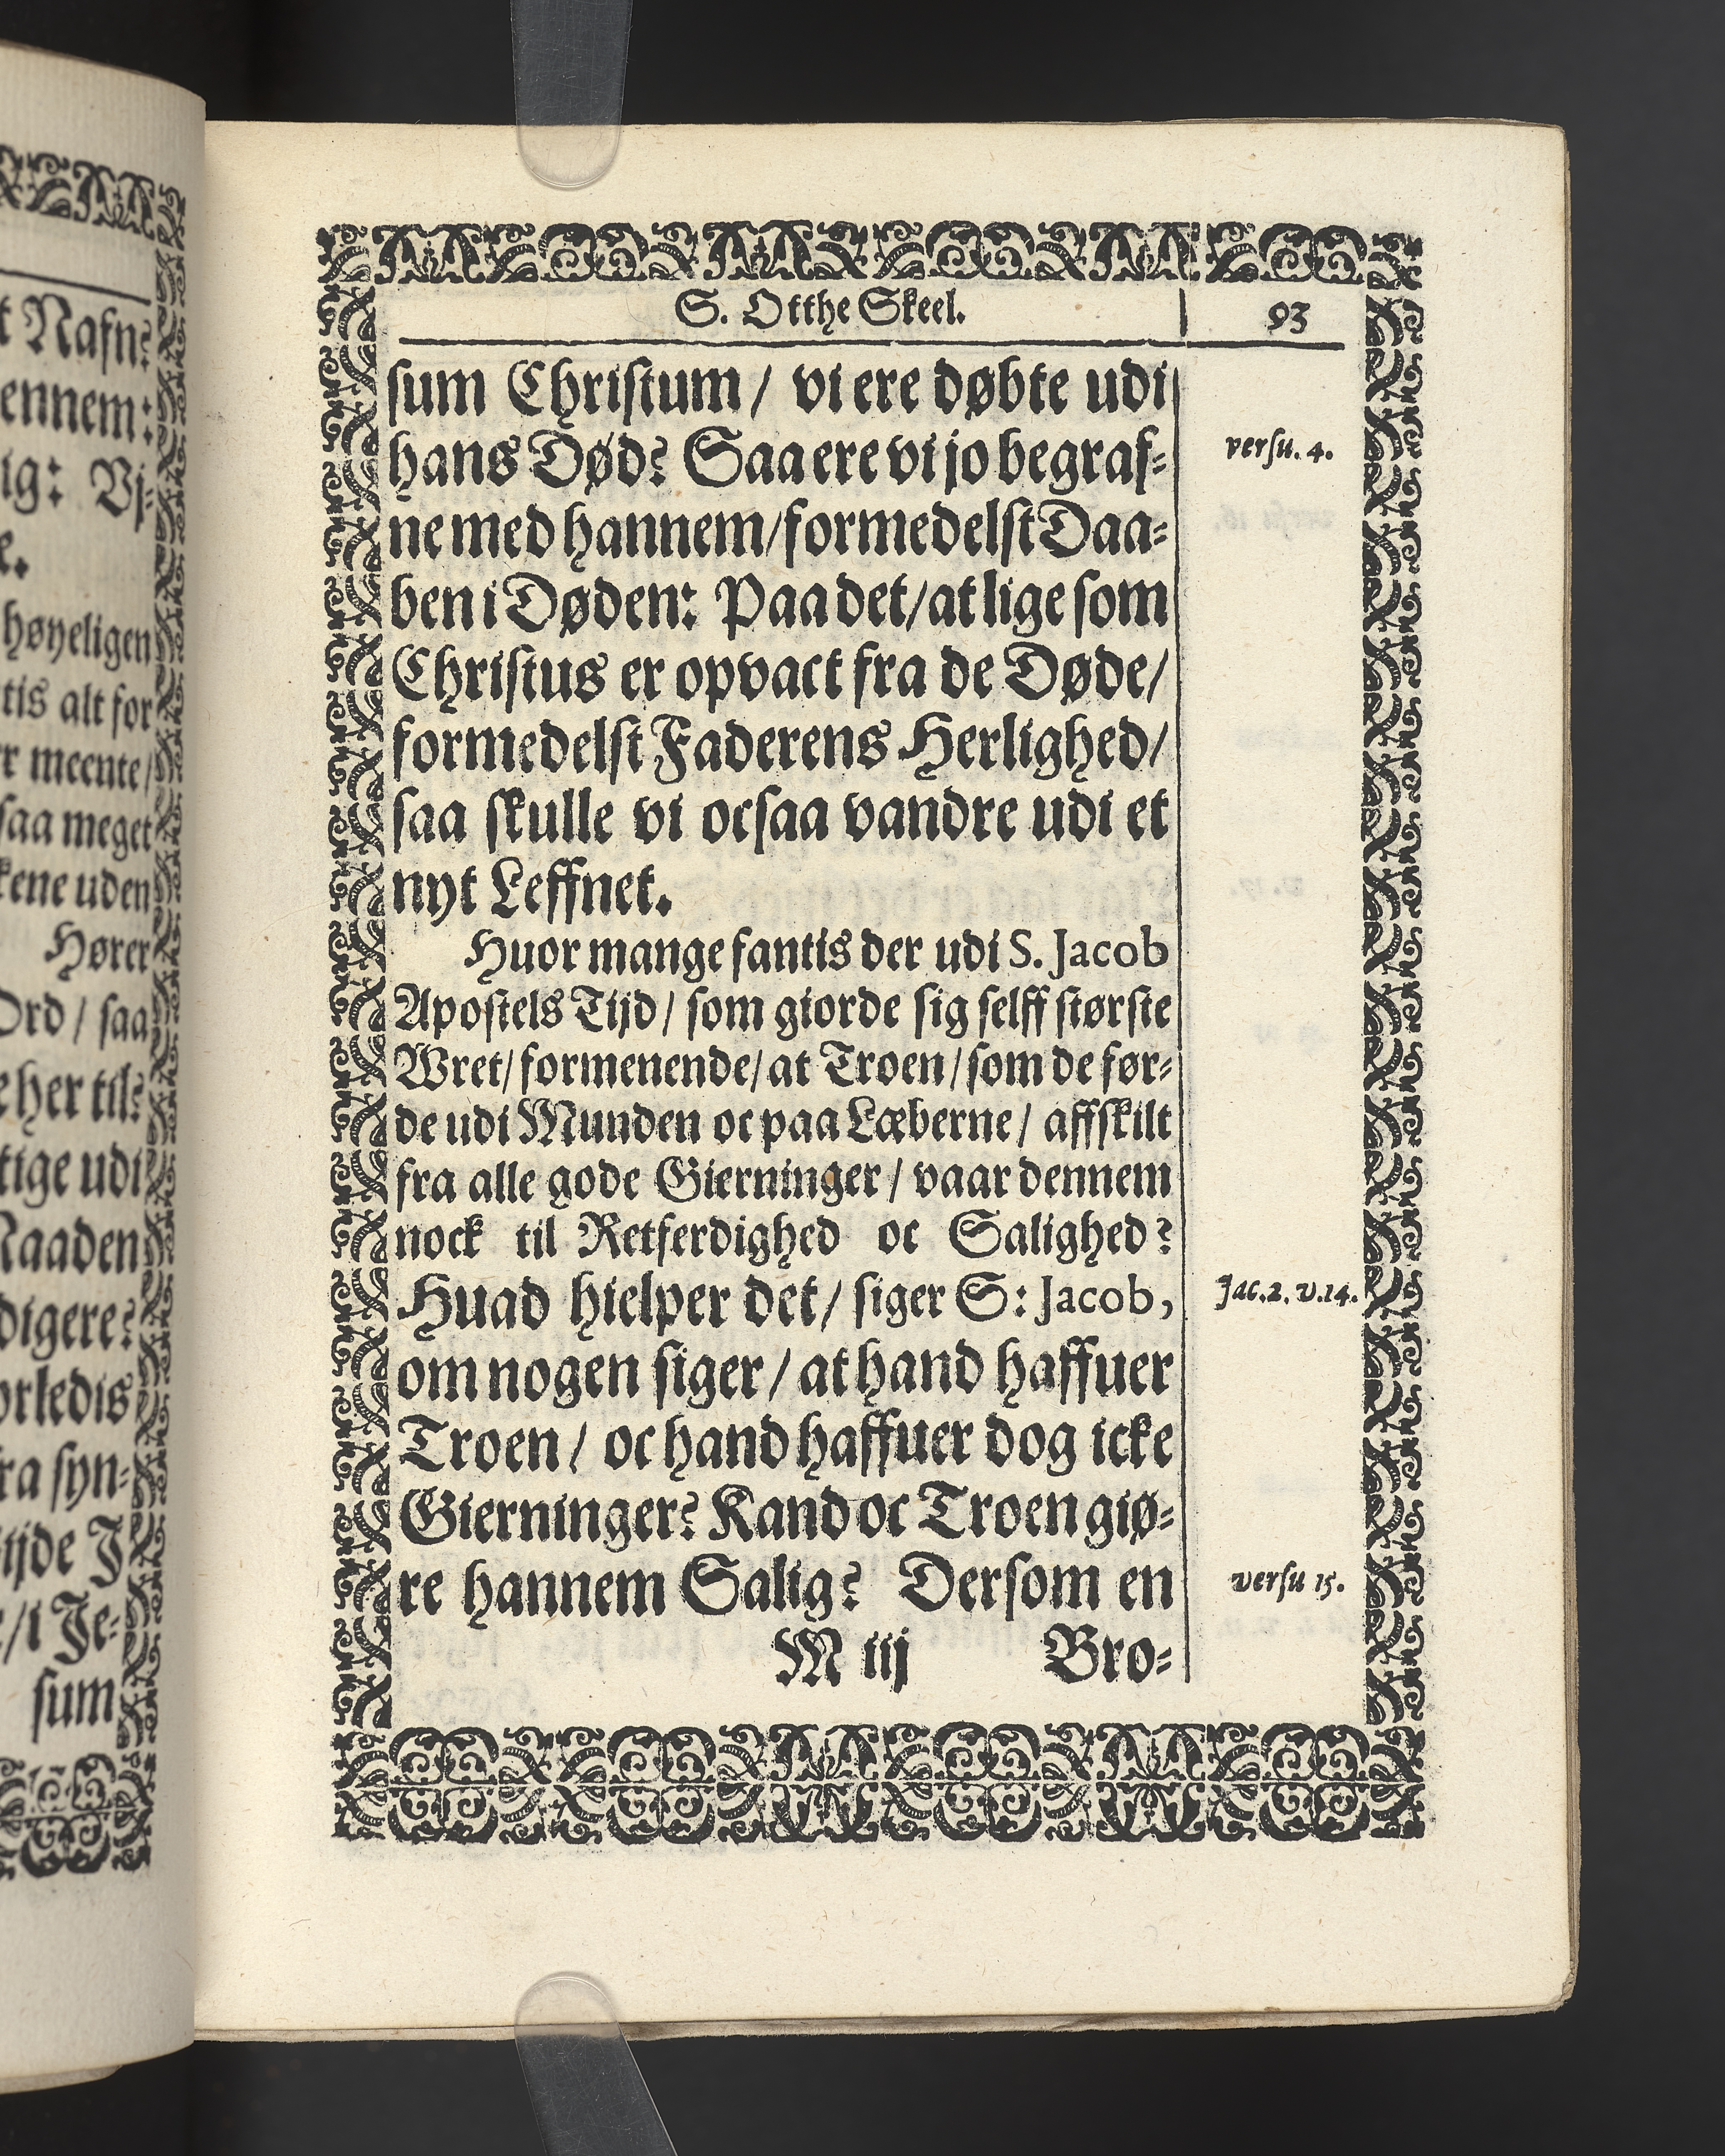 t Nafn⸗
ennem:
ig: Vj⸗
e.
høyeligen
tis alt for
r meente/
saa meget
kene uden
Hører
Ord / saa
e her til⸗
tige udi
Raaden
digere?
orledis
ra syn⸗
ijde J
e/i Je⸗
sum
S. Otthe Skeel.
93
sum Christum / vi ere døbte udi
hans Død? Saa ere vi jo begraf⸗
versu. 4.
ne med hannem/formedelst Daa⸗
ben i Døden: Paa det/at lige som
Christus er opvact fra de Døde/
formedelst Faderens Herlighed/
saa skulle vi ocsaa vandre udi et
nyt Leffnet.
Huor mange fantis der udi S. Jacob
Apostels Tijd / som giorde sig selff største
Wret/ formenende/ at Troen / som de før⸗
de udi Munden oc paa Læberne / affskilt
fra alle gode Gierninger / vaar dennem
nock til Retferdighed oc Salighed?
Huad hielper det/ siger S: Jacob,
Jac. 2. v. 14.
om nogen siger / at hand haffuer
Troen / oc hand haffuer dog icke
Gierninger? Kand oc Troen giø⸗
re hannem Salig? Dersom en
versu 15.
M iij
Bro⸗